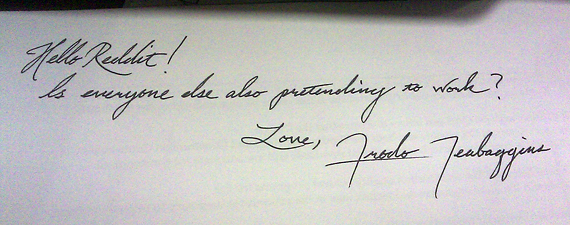 Hello Reddit!
Is everyone else also pretending to work?
Love, Frodo Teabaggins